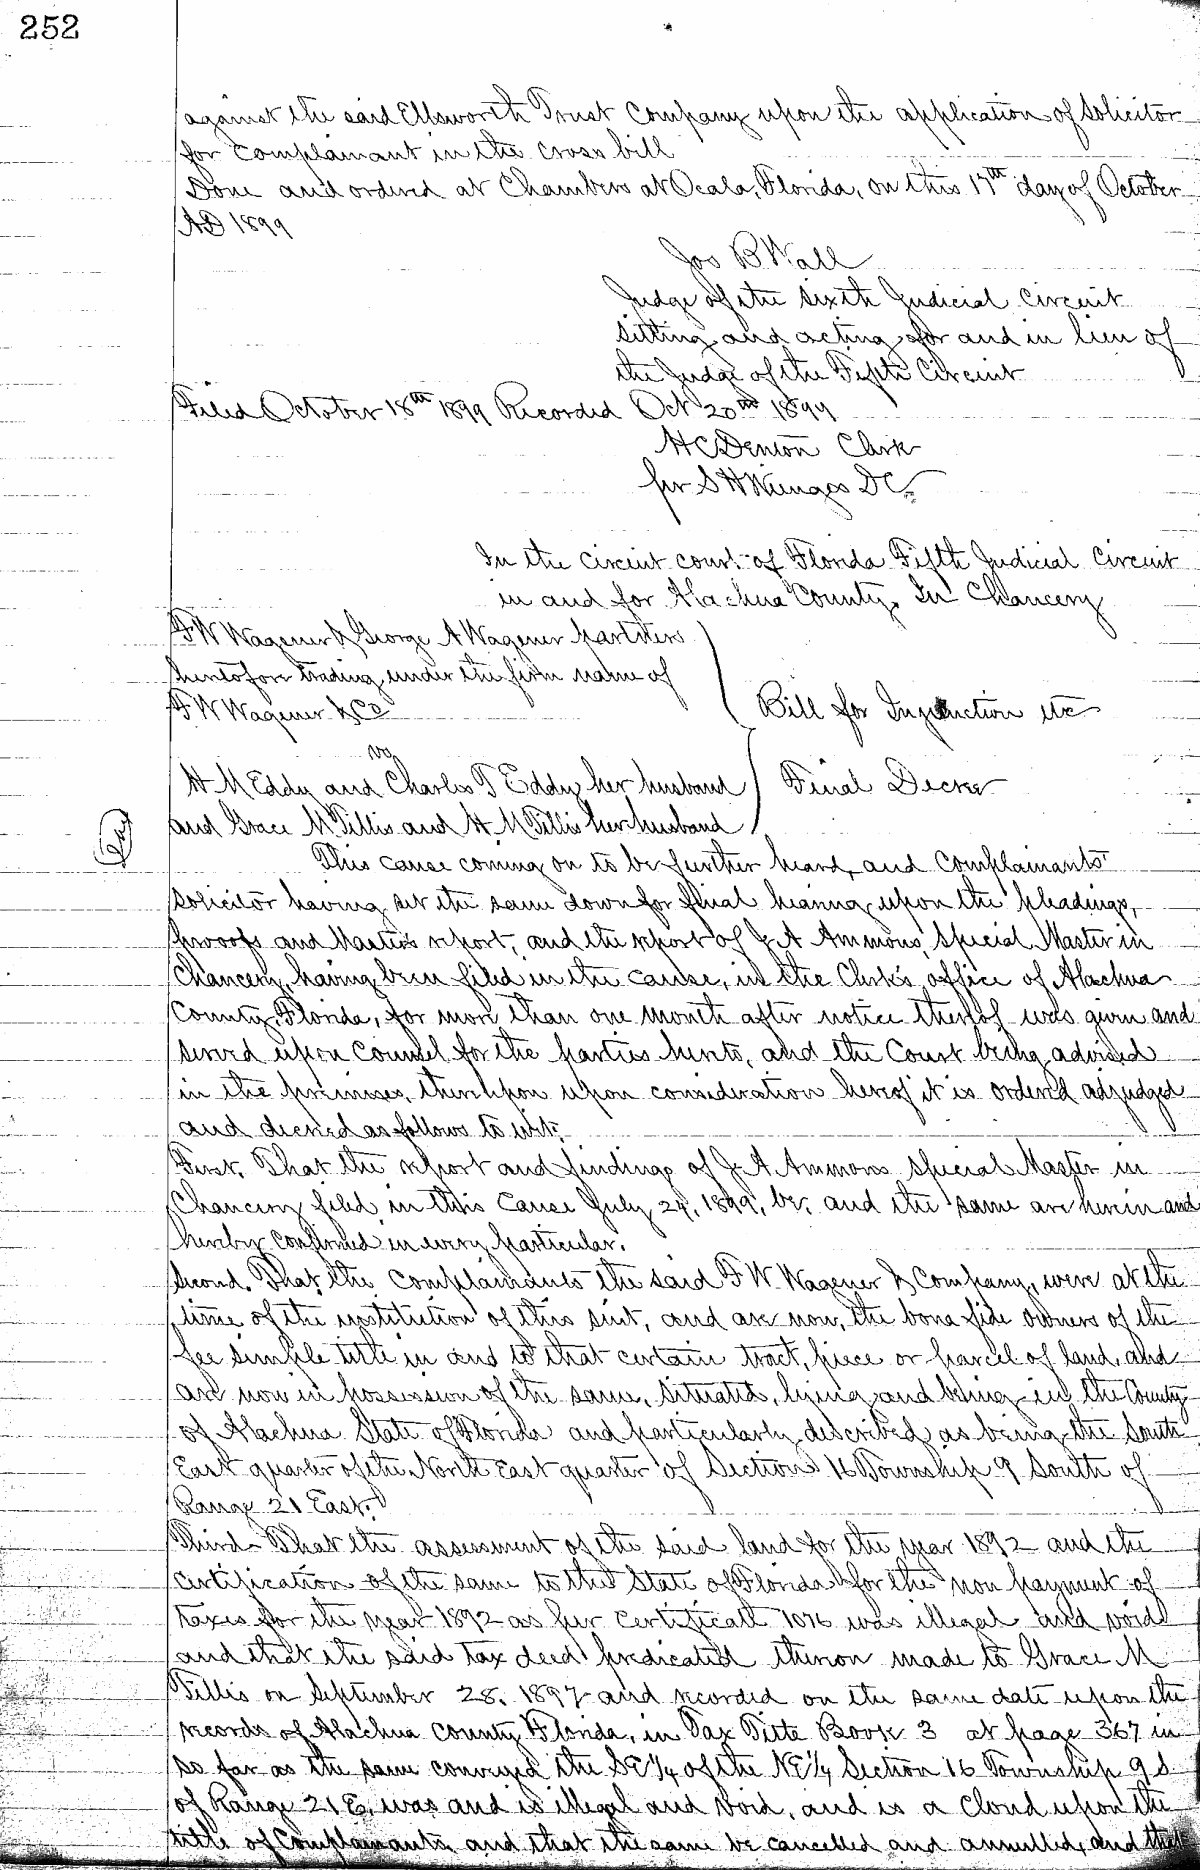 252
against the said Ellsworth Trust Company upon the application of Solicitor
for Complainant in the cross bill
Done and ordered at Chambers at Ocala, Florida, on this 17th day of October
AD 1899
Jos B Wall
Judge of the Sixth Judicial Circuit
sitting and acting for and in lieu of
the Judge of the Fifth Circuit
Filed October 18th 1899 Recorded Oct 20th 1899
H C Denton Clerk
per S H Wienges DC.
In the Circuit court of Florida Fifth Judicial Circuit
in and for Alachua County. In Chancery
F W Wagener & George A Wagener partners
heretofore trading under the firm name of
F W Wagener & Co
Bill for Injunction etc
vs
H M Eddy and Charles T Eddy her husband
Final Decree
and Grace M Tillis and H M Tillis her husband
This cause coming on to be further heard, and Complainants'
solicitor having set the same down for final hearing upon the pleadings,
prooofs and Master's report, and the report of J. A Ammons, Special Master in
Chancery, having been filed in the cause, in the Clerk's office of Alachua
County, Florida, for more than one month after notice thereof was given and
served upon Counsel for the parties hereto, and the Court being advised
in the premises, thereupon upon consideration hereof it is ordered adjudged
and decreed as follows to wit:
First. That the report and findings of J. A Ammons Special Master in
Chancery filed in this Cause July 29, 1899, be, and the same are herein and
hereby confirmed in every particular.
Second. That the Complainants the said F W Wagener & Company, were at the
time of the institution of this suit, and are now, the bona fide owners of the
fee simple title in and to that certain tract, piece or parcel of land, and
are now in possession of the same, situated, lying and being in the County
of Alachua State of Florida and particularly described as being the South
East quarter of the North East quarter of Section 16 Township 9 South of
Range 21 East.
Third. That the assessment of the said land for the year 1892 and the
certification of the same to the State of Florida for the non payment of
taxes for the year 1892 as per Certificate 1076 was illegal and void
and that the said tax deed predicated thereon made to Grace M
Tillis on September 28. 1897 and recorded on the same date upon the
records of Alachua County Florida, in Tax Title Book 3 at page 367 in
so far as the same conveyed the SE 1/4 of the NE 1/4 Section 16 Township 9 S
of Range 21 E, was and is illegal and void, and is a Cloud upon the
title of Complainants, and that the same be cancelled and annulled, and that